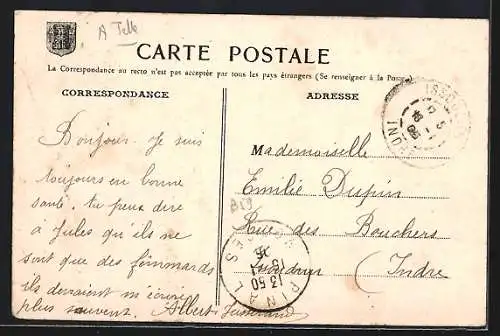 A Telle
CARTE POSTALE
La Correspondance au recto n'est pas acceptée par tous les pays étrangers (Se renseigner à la Poste.)
CORRESPONDANCE
ADRESSE
Bonjour. Je suis
toujours en bonne
santé, tu peux dire
à Jules qu'ils ne
sont que des feinnards
ils devraient m'écrire
plus souvent. Albert
Mademoiselle
Emilie Dupin
Rue des Bouchers
Issoudun (Indre)
ISSOUDUN
EPINAL
13 50